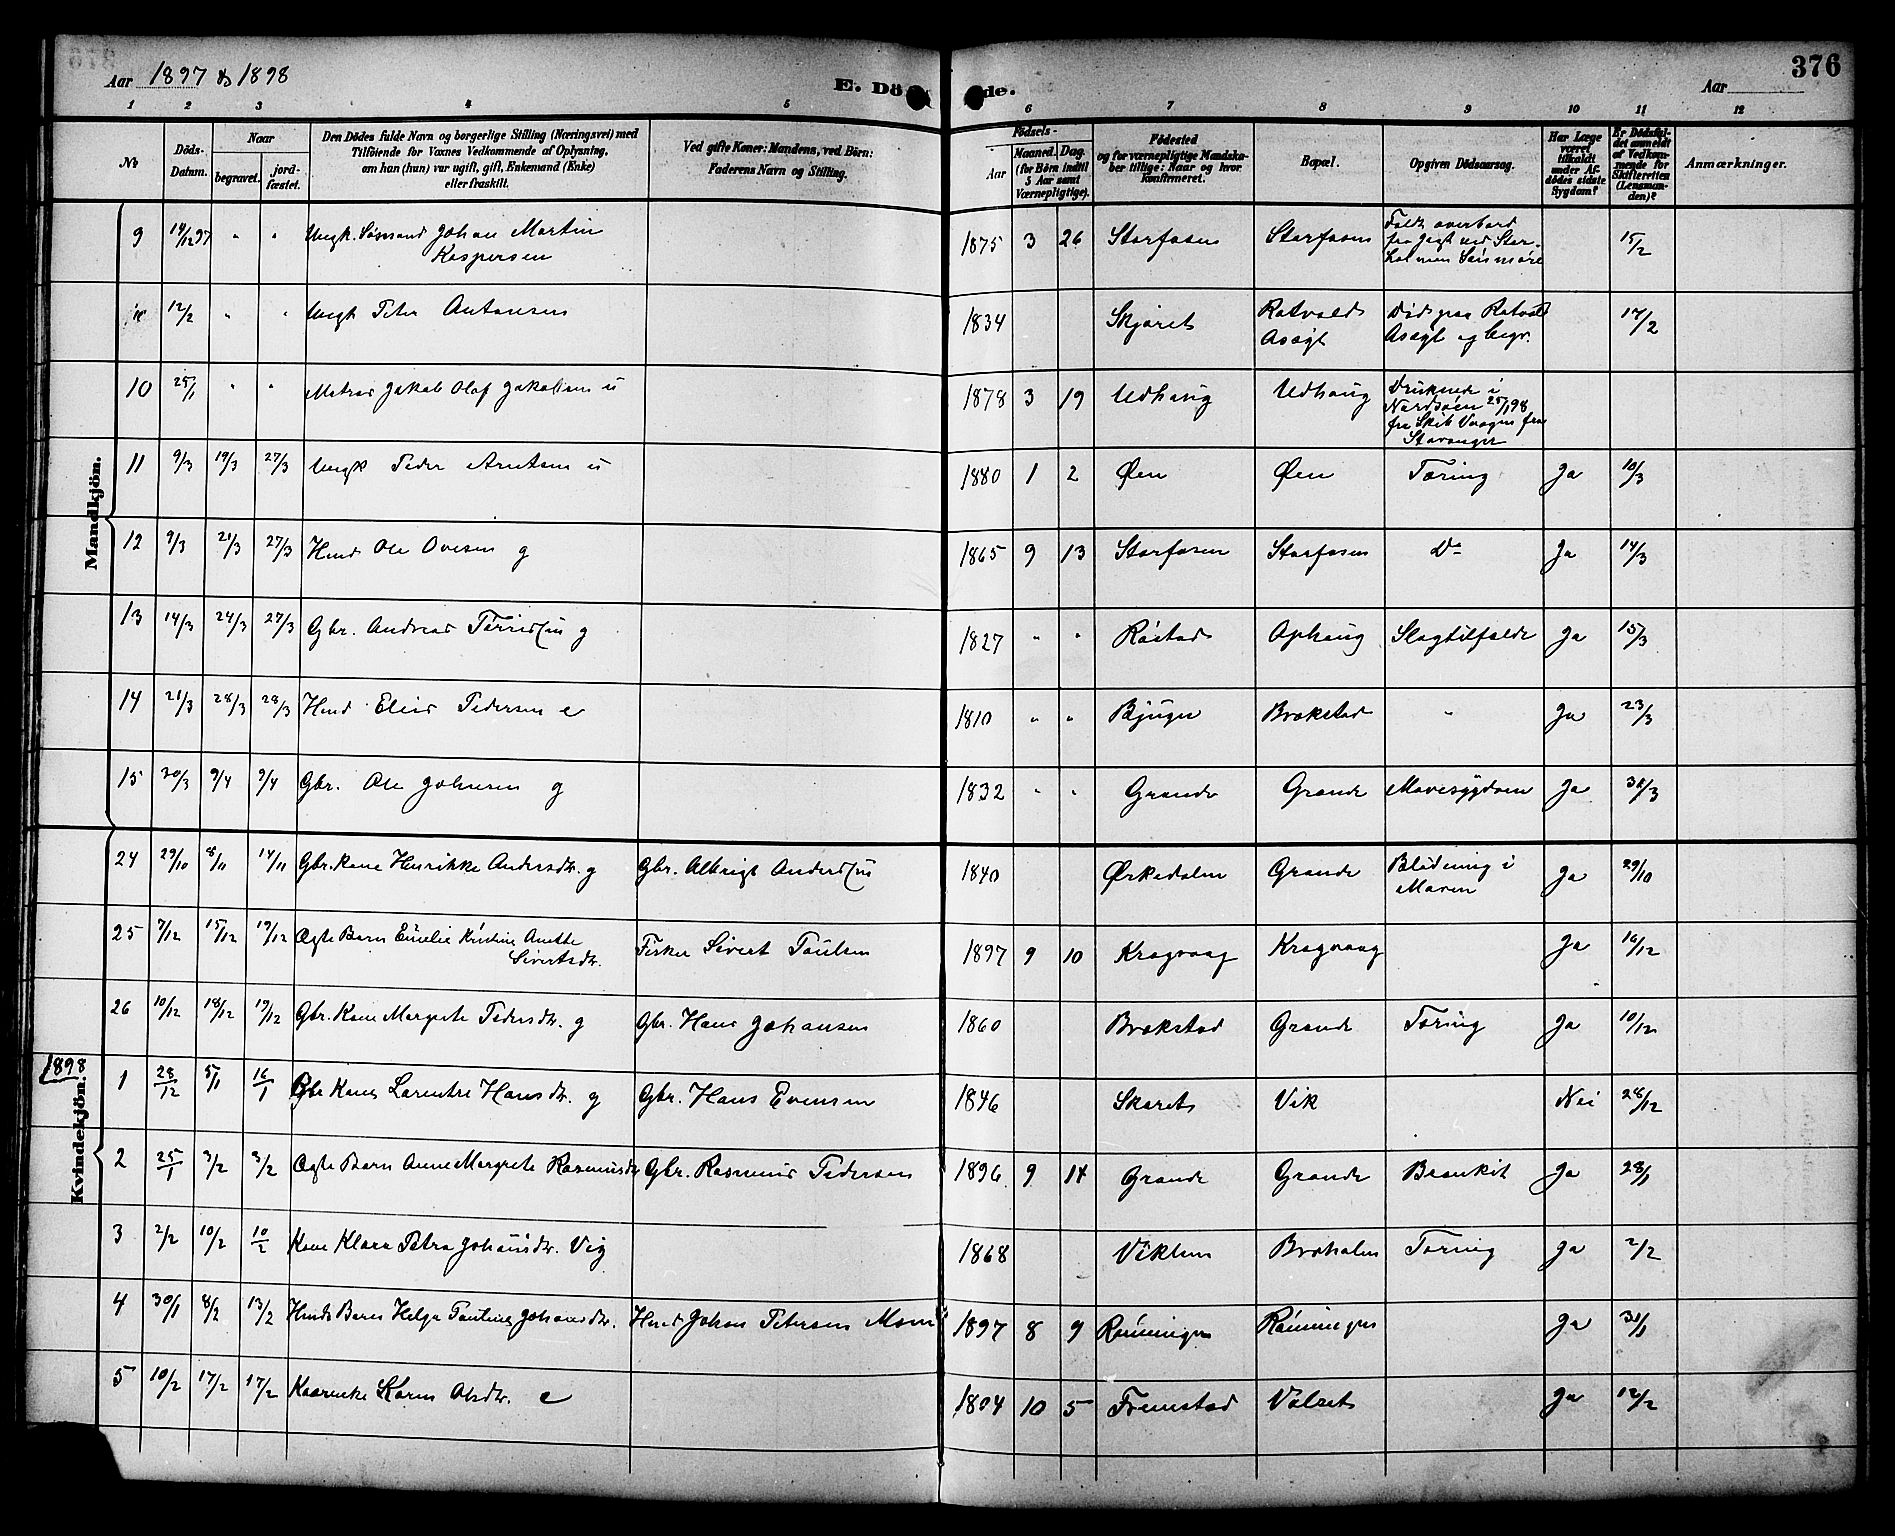 Aar 1897 & 1898
E. Döde.
Aar
376
1 2 3 4 5 6 7 8 9 10 11 12
No
Döds-Datum.
Naar
begravet.
jord-fæstet.
Den Dödes fulde Navn og borgerlige Stilling (Næringsvei) med
Tilföiende for Voxnes Vedkommende af Oplysning,
om han (hun) var ugift, gift, Enkemand (Enke)
eller fraskilt.
Ved gifte Koner: Mandens, ved Börn:
Faderens Navn og Stilling.
Födsels-
Aar
Maaned. Dag.
(for Börn indtil
5 Aar samt
Værnepligtige).
Födested
og for værnepligtige Mandska-
ber tillige: Naar og hvor
konfirmeret.
Bopæl.
Opgiven Dödsaarsag.
Har Læge
været
tilkaldt
under Af-
dödes sidste
Sygdom?
Er Dödsfal-
det anmeldt
af Vedkom-
mende for
Skifteretten
(Lensman-
den)?
Anmærkninger.
Mandkjön.
9 19/12 97 " " Ungk. Søsmand Johan Martin Kaspersen 1875 3 26 Storfosen Storfosen Faldt overbord fra Jagt ved Stor-holmen Søndmøre 15/2
12/2 " " Ungk Peter Antonsen 1834 Skjøret Ratvolds Asögt Död paa Ratvolds Asögt og begr. 17/2
10 25/1 " " Matros Jakob Olaf Jakobsen u 1878 3 19 Udhaug Udhaug Druknede i Nordsøen 25/1 98 fra Skib Vaagen fra Stavanger
11 9/3 19/3 27/3 Ungk Peder Arntsen u 1880 1 2 Øen Øen Tæring Ja 10/3
12 9/3 21/3 27/3 Hmd Ole Ovesen g 1865 9 13 Storfosen Storfosen Do Ja 14/3
13 14/3 24/3 27/3 Gbr. Andreas Törrissen g 1827 " " Röstad Ophaug Slagtilfælde Ja 15/3
14 21/3 28/3 28/3 Hmd Elias Pedersen e 1810 " " Bjugn Brækstad " Ja 23/3
15 30/3 9/4 9/4 Gbr. Ole Johnsen g 1832 " " Grande Grande Mavesygdom Ja 31/3
Kvindekjön.
24 29/10 8/11 14/11 Gbr.kone Henrikke Andersdtr. g Gbr. Albrigt Anderssen 1840 Ørkedalen Grande Blødning i Maven Ja 29/10
25 7/12 15/12 19/12 Ægte Barn Emelie Kristine Anette Sivertsdtr. Fisker Sivert Paulsen 1897 9 10 Kragvaag Kragvaag Ja 16/12
26 10/12 18/12 19/12 Gbr. Kone Margrete Pedersdtr. g Gbr. Hans Johansen 1860 Brækstad Grande Tæring Ja 10/12
1898
1 28/12 5/1 16/1 Gbr Kone Larentse Hansdtr. g Gbr. Hans Evensen 1846 Skaret Vik Nei 28/12
2 25/1 3/2 3/2 Ægte Barn Anne Margrete Rasmusdtr Gbr. Rasmus Pedersen 1896 9 14 Grande Grande Bronkit Ja 28/1
3 2/2 10/2 10/2 Kone Klara Petra Johansdtr. Vig 1868 Viklem Bræholen Tæring Ja 2/2
4 30/1 8/2 13/2 Hmds Barn Helga Pauline Johansdtr. Hmd Johan Petersen Moen 1897 8 9 Rønningen Rønningen Ja 31/1
5 10/2 17/2 17/2 Kaarenke Karen Olsdtr. e 1804 10 5 Fremstad Valset Ja 12/2